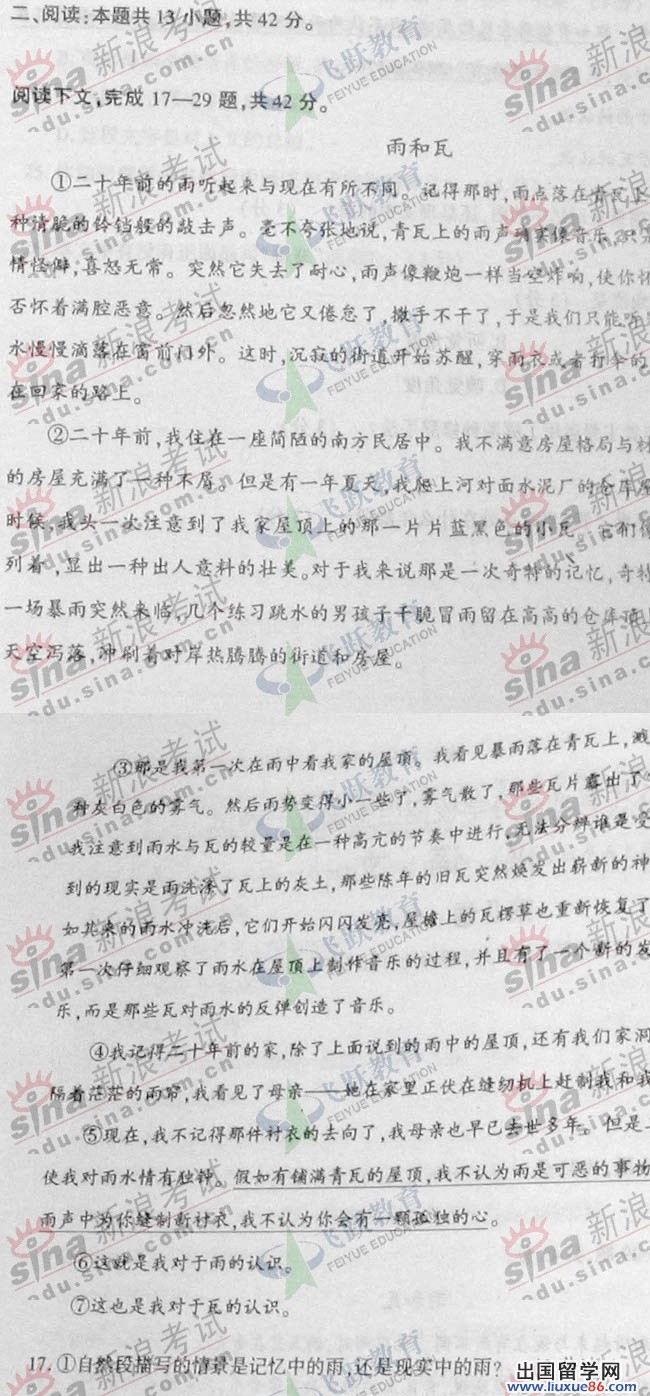 二、阅读:本题共13小题,共42分。
阅读下文,完成17—29题,共42分。
雨和瓦
①二十年前的雨听起来与现在有所不同。记得那时,雨点落在青瓦上
种清脆的铃铛般的敲击声。毫不夸张地说,青瓦上的雨声确实像音乐,只是
情怪僻,喜怒无常。突然它失去了耐心,雨声像鞭炮一样当空炸响,使你怀
否怀着满腔恶意。然后忽然地它又倦怠了,撒手不干了,于是我们只能听
水慢慢滴落在窗前门外。这时,沉寂的街道开始苏醒,穿雨衣或者打伞的
在回家的路上。
②二十年前,我住在一座简陋的南方民居中。我不满意房屋格局与材
的房屋充满了一种不屑。但是有一年夏天,我爬上河对面水泥厂的仓库屋
时候,我头一次注意到了我家屋顶上的那一片片蓝黑色的小瓦。它们像
列着,显出一种出人意料的壮美。对于我来说那是一次奇特的记忆,奇特
一场暴雨突然来临,几个练习跳水的男孩子干脆冒雨留在高高的仓库顶上
天空泻落,冲刷着对岸热腾腾的街道和房屋。
③那是我第一次在雨中看我家的屋顶。我看见暴雨落在青瓦上,溅
种灰白色的雾气。然后雨势变得小一些了,雾气散了,那些瓦片露出了
我注意到雨水与瓦的较量是在一种高亢的节奏中进行,无法分辨谁是受
到的现实是雨洗涤了瓦上的灰土,那些陈年的旧瓦突然焕发出崭新的神
如其来的雨水冲洗后,它们开始闪闪发亮,屋檐上的瓦楞草也重新恢复了
第一次仔细观察了雨水在屋顶上制作音乐的过程,并且有了一个新的发
乐,而是那些瓦对雨水的反弹创造了音乐。
④我记得二十年前的家,除了上面说到的雨中的屋顶,还有我们家洞
隔着茫茫的雨帘,我看见了母亲——她在家里正伏在缝纫机上赶制我和我
⑤现在,我不记得那件衬衣的去向了,我母亲也早已去世多年。但是二
使我对雨水情有独钟。假如有铺满青瓦的屋顶,我不认为雨是可恶的事物
雨声中为你缝制新衬衣,我不认为你会有一颗孤独的心。
⑥这就是我对于雨的认识。
⑦这也是我对于瓦的认识。
17.①自然段描写的情景是记忆中的雨,还是现实中的雨?
出国留学网
www.liuxue86.com
新浪考试
sina
edu.sina.com.cn
飞跃教育
FEIYUE EDUCATION